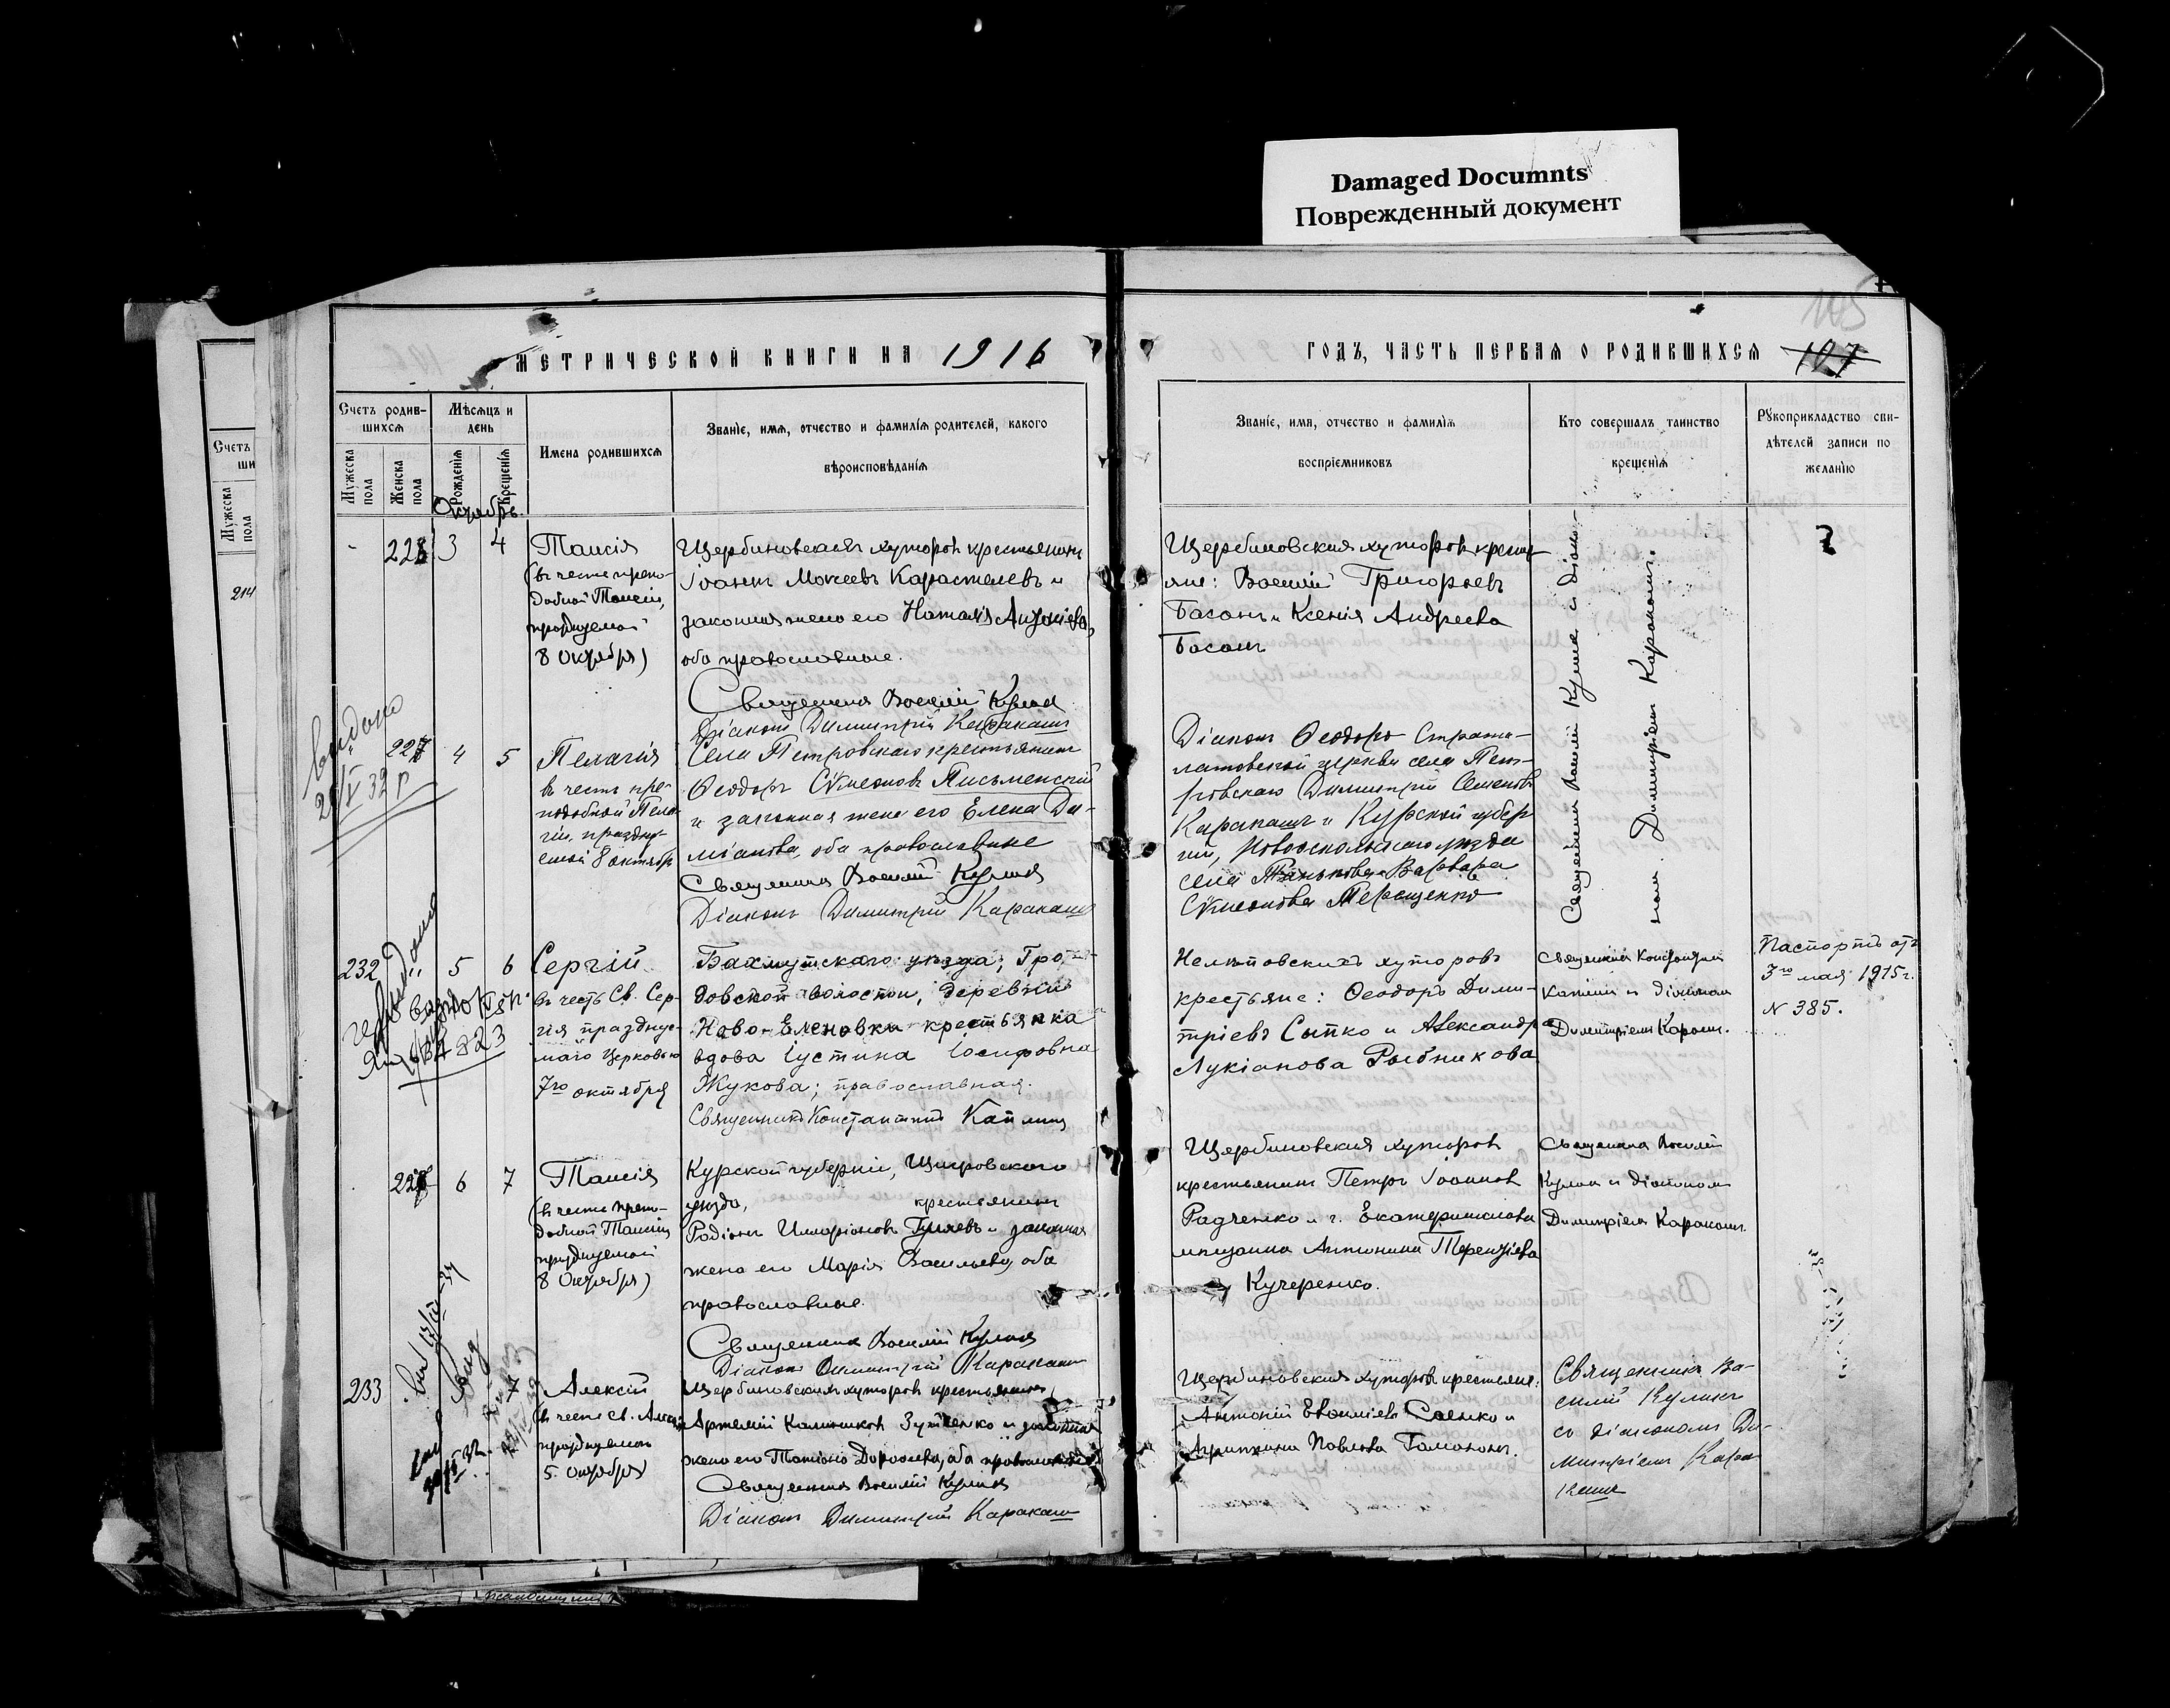 Damaged Documnts
Поврежденный документ
МЕТРИЧЕСКОЙ КНИГИ НА 1916
ГОДЪ, ЧАСТЬ ПЕРВАЯ О РОДИВШИХСЯ 107
105
Счетъ родив-
шихся
Мѣсяцъ и
день
Имена родившихся
Званіе, имя, отчество и фамилія родителей, какого
вѣроисповѣданія
Званіе, имя, отчество и фамилія
воспріемниковъ
Кто совершалъ таинство
крещенія
Рукоприкладство сви-
дѣтелей записи по
желанію
Счетъ
ши
Мужеска
пола
214
Мужеска
пола
Женска
пола
Рожденія
Крещенія
Октябрь
3 4
Таисія
(въ честь препо-
добной Таисіи,
празднуемой
8 Октября)
Щербиновскихъ хуторовъ крестьянинъ
Іоаннъ Моисеевъ Карастелевъ и
законная жена его Наталія
оба православные.
Священникъ Василій Куликъ
Діаконъ Димитрій Каракашъ
Щербиновскихъ хуторовъ кресть-
яне: Василій Григорьевъ
Басанъ и Ксенія Андреева
Басанъ
Священникъ Василій Куликъ и діако-
номъ Димитріемъ Каракашъ.
227 4 5
Пелагія
въ честь пре-
подобной Пела-
гіи, праздну-
емой 8 октябр
Села Петровскаго крестьянинъ
Ѳеодоръ Сѵмеоновъ Письменскій
и законная жена его Елена Да-
міанова, оба православные
Священникъ Василій Куликъ
Діаконъ Димитрій Каракашъ
Діаконъ Ѳеодоро Страти-
латовской церкви села Пет-
ровскаго Димитрій Семеновъ
Каракашъ и Курской губер
ніи, Новооскольскаго уѣзда
села Варвара
Сѵмеонова Терещенко
232 " 5 6
Сергій
въ честь Св. Сер-
гія празднуе-
маго Церковью
7го октября
Бахмутскаго уѣзда,
довской волости, деревни
Ново-Еленовки крестьянка
вдова Іустина Іосифовна
Жукова; православная.
Священникъ Константинъ
Нелѣповскихъ хуторовъ
крестьяне: Ѳеодоръ Дими-
тріевъ Сытко и Александра
Лукіанова Рыбникова
Димитріемъ Каракаш.
Паспортъ отъ
3го мая 1915 г.
N 385.
6 7
Таисія
(въ честь препо-
добной Таисіи
празднуемой
8 Октября)
Курской губерніи, Щигровскаго
уѣзда, крестьянинъ
Родіонъ Иларіоновъ Гуляевъ и законная
жена его Марія Васильева, оба
православные.
Священникъ Василій Куликъ
Діаконъ Димитрій Каракашъ
Щербиновскихъ хуторовъ
крестьянинъ Петръ Іоанновъ
Радченко и г. Екатеринослава
мѣщанка Антонина Терентіева
Кучеренко.
Священникъ Василій
Куликъ и діакономъ
Димитріемъ Каракашъ.
233 7
Алексій
(въ честь св. Алексія
празднуемаго
5 Октября)
Щербиновскихъ хуторовъ крестьянинъ
Артемій Калинниковъ и законная
жена его Татіана Дороѳеева, оба православные.
Священникъ Василій Куликъ
Діаконъ Димитрій Каракашъ
Щербиновскихъ хуторовъ крестьяне:
Антоній Саенко и
Агрипина Павлова
Священникъ Ва-
силій Куликъ
со діакономъ Ди-
митріемъ Кара
кашъ